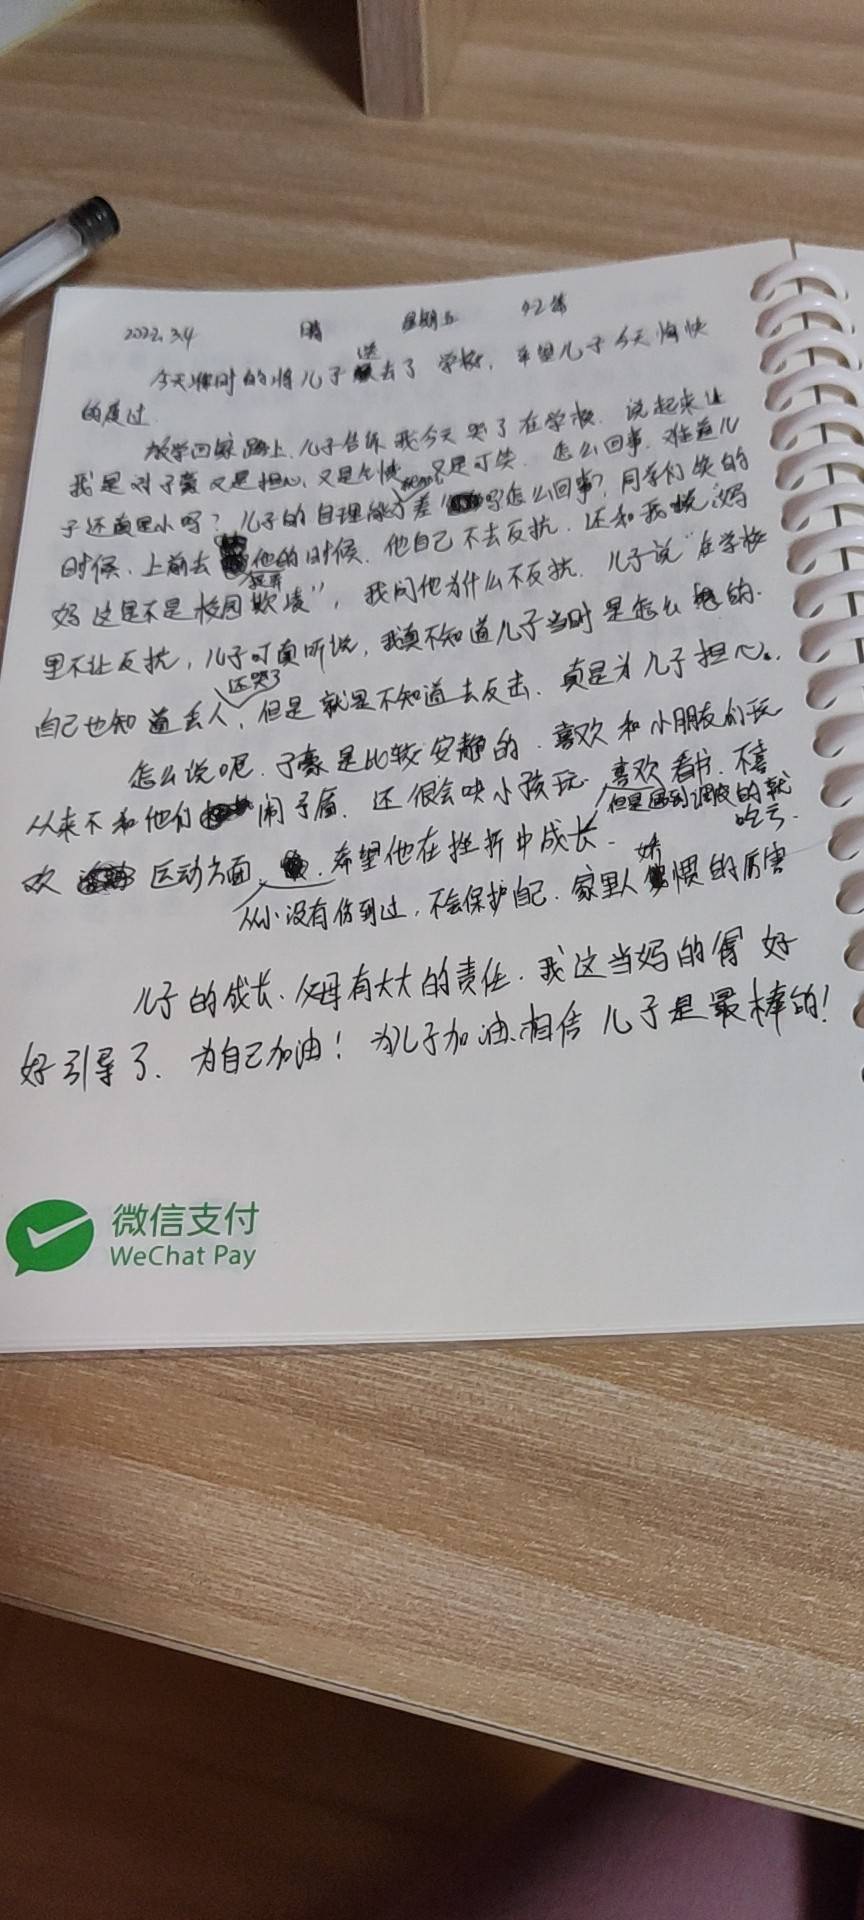 2022.3.4 晴 星期五 42篇
今天准时的将儿子送去了学校，希望儿子今天愉快
的度过.
放学回家路上、儿子告诉我今天哭了在学校. 说起来让
我是对子豪又是担心、又是生气又是可笑. 怎么回事. 难道儿
子还真是小吗？儿子的自理能力差吗怎么回事？同学们笑的
时候、上前去捉弄他的时候. 他自己不去反抗. 还和我说“妈
妈这是不是校园欺凌”, 我问他为什么不反抗. 儿子说“在学校
里不让反抗, 儿子可真听说, 我真不知道儿子当时是怎么想的.
自己也知道丢人还哭了, 但是就是不知道去反击. 真是为儿子担心.
怎么说呢. 子豪是比较安静的. 喜欢和小朋友们玩
从来不和他们闹矛盾. 还很会哄小孩玩. 喜欢看书. 不喜
但是遇到调皮的就
吃亏.
欢运动方面. 希望他在挫折中成长.
从小没有伤到过, 不会保护自己. 家里人娇惯的厉害
儿子的成长、父母有大大的责任. 我这当妈的得好
好引导了. 为自己加油！为儿子加油、相信儿子是最棒的！
微信支付
WeChat Pay